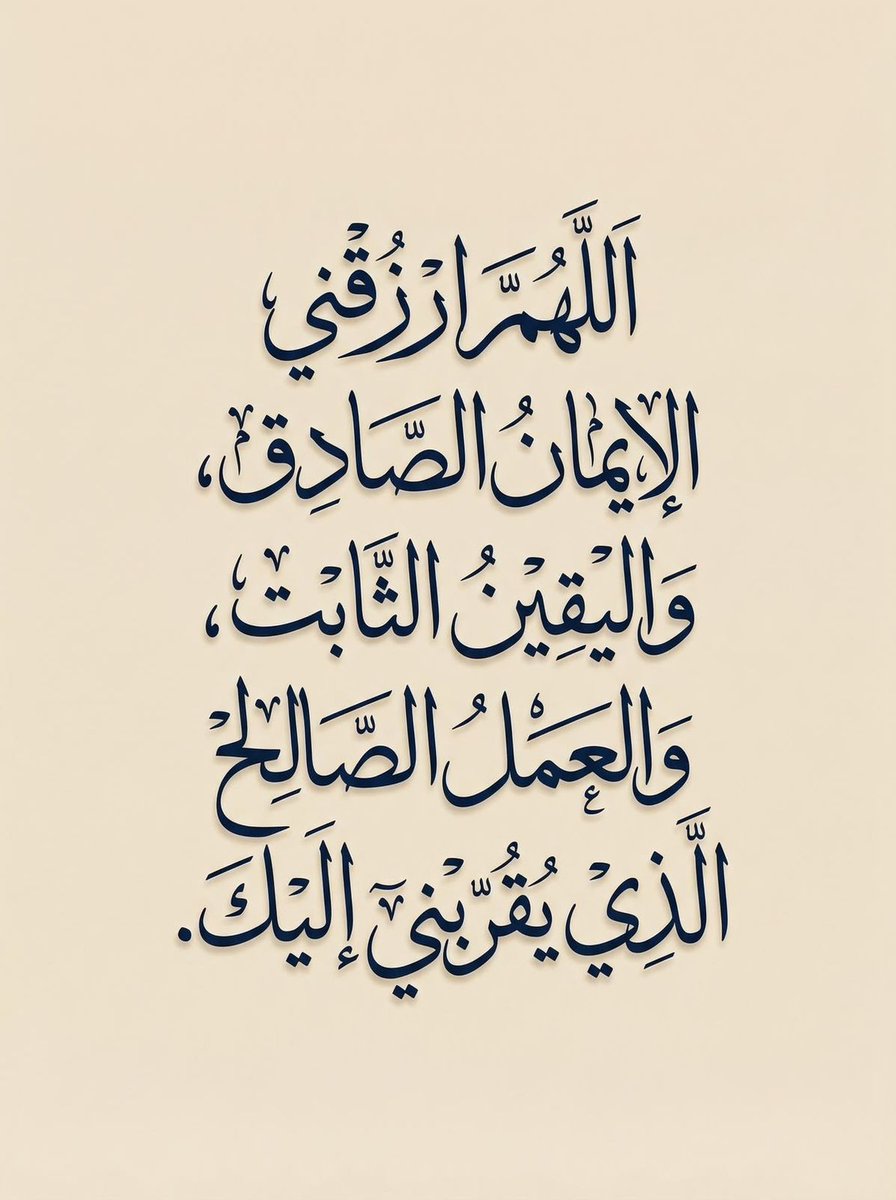 اَللَّهُمَّ ارْزُقْني
الإيمانُ الصَّادِق،
وَاليْقِيْنُ الثَّابْت،
وَالعَمَلُ الصَّالِحْ
الَّذِيْ يُقُرّبْني إلَيْكَ.